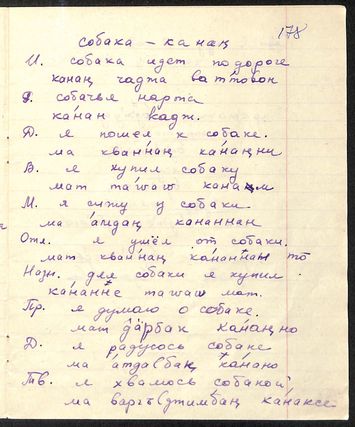 178
собака – канаң
И. собака идет по дороге
канаң чаджа ваттовон
Р. собачья нарта
ка́нан кадж.
Д. я пошел к собаке.
ма ква́ннаң ка́наңни
В. я купил собаку
мат та́ваш кана
М. я сижу у собаки
ма а́мдаң кананнан
Отл. я ушёл от собаки.
мат кваннаң ка́наннан то
Назн. для собаки я купил
ка́нанне таваш мат.
Пр. я думаю о собаке.
мат да́рбак ка́наңно
Д. я радуюсь собаке
ма ка́нано
Тв. я хвалюсь собакой
ма ка́наксе